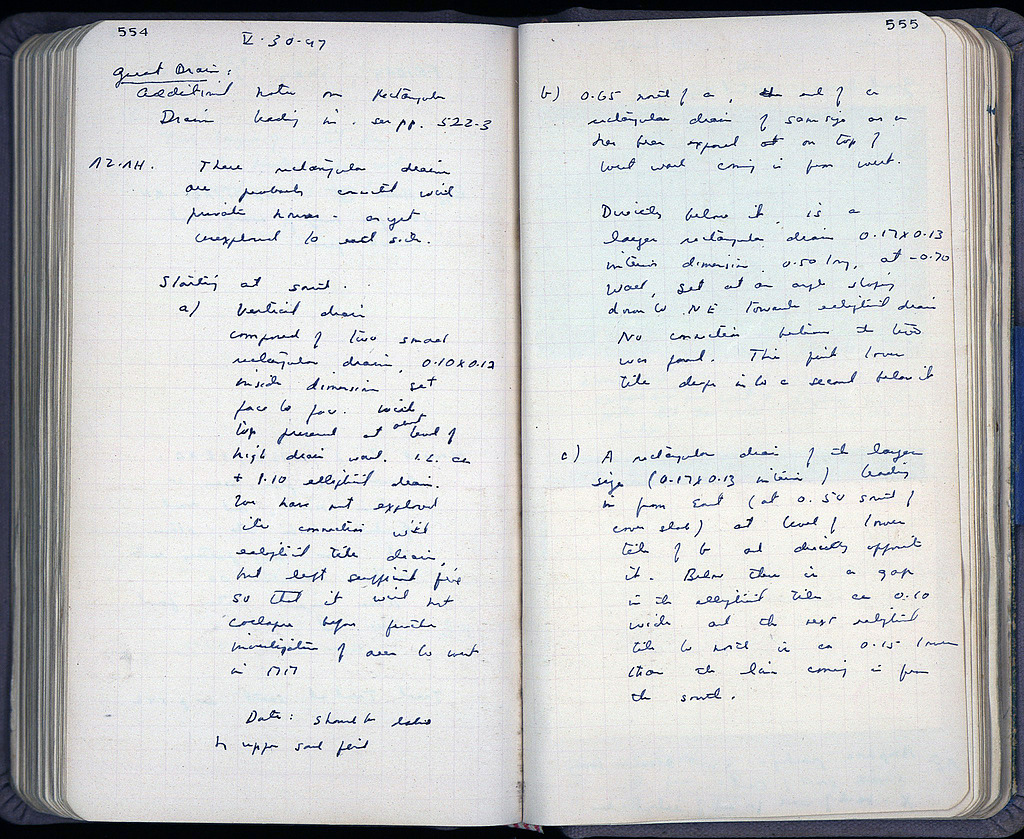 554
V·30·47
Great Drain:
Additional notes on Rectangular
Drain leading in. see pp. 522-3
ΛΖ·ΛΗ. These rectangular drains
are probably connected with
private houses - as yet
unexplored to east side.
Starting at south.
a) Vertical drain
composed of two small
rectangular drains, 0.10 x 0.12
inside dimension set
face to face. with
top preserved at about level of
high drain wall. i.e. ca
+ 1.10 elliptical drain.
We have not explored
its connection with
elliptical tile drain,
but left sufficient
so that it will not
collapse before further
investigation of area to west
in
Date: should be
to upper
555
b) 0.65 north of a, the end of a
rectangular drain of same size as in
has been exposed at on top of
west wall coming in from west.
Directly below it, is a
larger rectangular drain 0.17 x 0.13
interior dimension, 0.50 long, at -0.70
wall, set at an angle sloping
down to NE towards elliptical drain
No connection between the two
was found. This lower
tile drops into a second below it
c) A rectangular drain of the larger
size (0.17 x 0.13 interior) leading
in from East (at 0.50 south of
cover slab) at level of lower
tile of b and directly opposite
it. Below there is a gap
in the elliptical tiles ca 0.10
wide and the next elliptical
tile to north is ca 0.15 lower
than the line coming in from
the south.